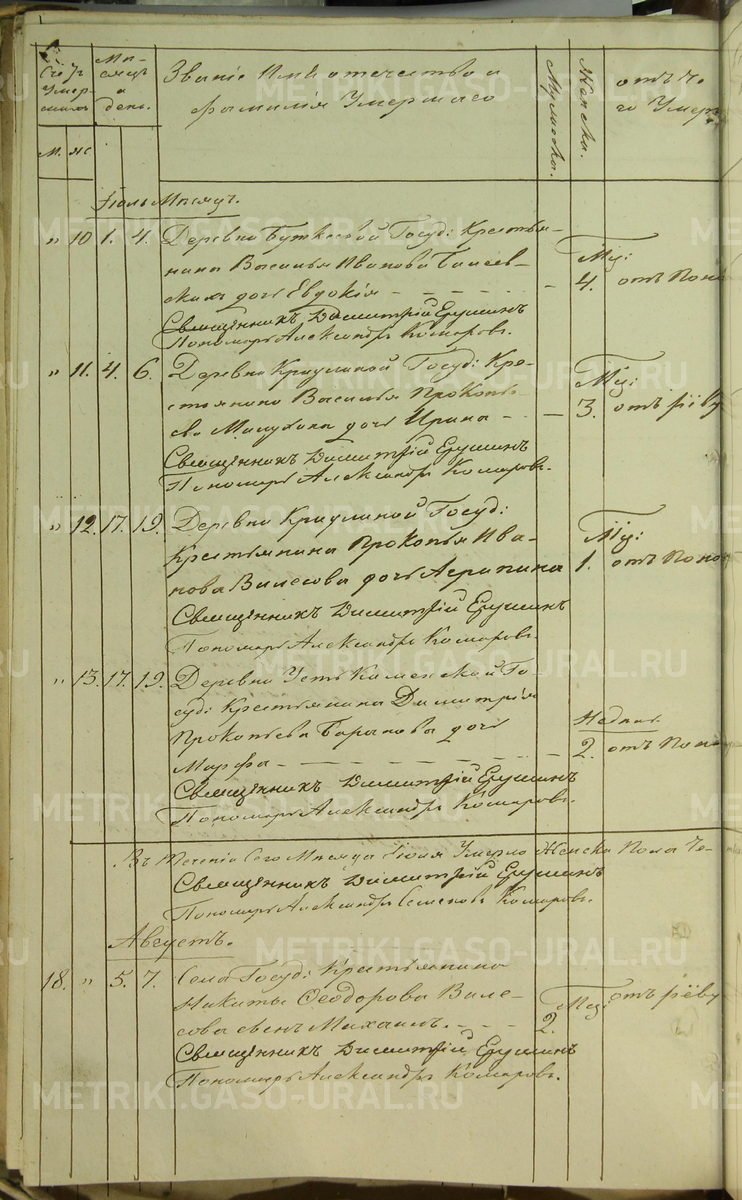 Счетъ Умершихъ
Мѣсяцъ и день.
Званіе Имя отечество и
фамилія Умершаго
Мужска.
Женска.
отъ че
го Умерь
м. ж.
Іюль Мѣсяцъ.
„ 10 1. 4. Деревни Буткеевой Госуд: Крестья-
нина Василья Иванова
дочь Евдокія
Мѣ:
4. отъ поно
Священникъ Димитрій Ерушинъ
Пономарь Александръ Комаровъ.
„ 11. 4. 6. Деревни Крудилной Госуд: Кре-
стьянина Василья Прокопь-
ева дочь Ирина
Мѣ:
3. отъ рёву
Священникъ Димитрій Ерушинъ
Пономарь Александръ Комаровъ.
„ 12. 17. 19. Деревни Госуд:
Крестьянина Прокопья Ива-
нова Вилесова дочь Агрипина
Мѣ:
1. отъ поно
Священникъ Димитрій Ерушинъ
Пономарь Александръ Комаровъ.
„ 13. 17. 19. Деревни Усть Каменской Го-
суд: Крестьянина Димитрія
Прокопьева Баранова дочь
Марфа
Недѣль
2. отъ поно
Священникъ Димитрій Ерушинъ
Пономарь Александръ Комаровъ.
Въ теченіи сего Мѣсяца Іюля Умерло Женска Пола Че-
Священникъ Димитрій Ерушинъ
Пономарь Александръ Семеновъ Комаровъ.
Августъ.
18. „ 5. 7. Села Госуд: Крестьянина
Никиты Ѳеодорова Виле-
сова сынъ Михаилъ.
Мѣ:
2. отъ рёву
Священникъ Димитрій Ерушинъ
Пономарь Александръ Комаровъ.
METRIKI.GASO-URAL.RU